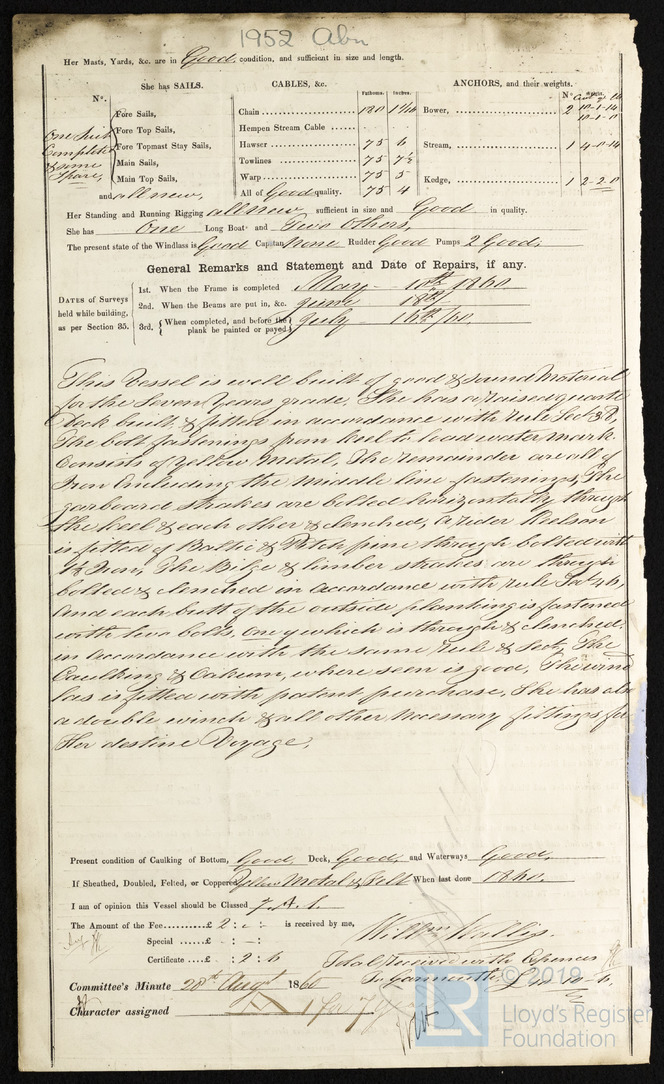 1952 Abn
Her Masts, Yards, &c. are in Good condition, and sufficient in size and length.
She has SAILS. CABLES, &c. ANCHORS, and their weights.
N°. Fathoms. Inches. N°
Fore Sails, Chain 180 Bower, 2 10-1-14
Fore Top Sails, Hempen Stream Cable 10-1-0
One Suit Complete & some Spare,
Fore Topmast Stay Sails, Hawser 75 6 Stream, 1 4-0-14
Main Sails, Towlines 75 7½
Main Top Sails, Warp 75 5 Kedge, 1 2-2-0
and all new, All of Good quality. 75 4
Her Standing and Running Rigging all new sufficient in size and Good in quality.
She has One Long Boat and Two Others,
The present state of the Windlass is Good Capstan None Rudder Good Pumps 2 Good;
General Remarks and Statement and Date of Repairs, if any.
DATES of Surveys held while building, as per Section 35.
1st. When the Frame is completed May - 10th 1860
2nd. When the Beams are put in, &c. June 18th
3rd. When completed, and before the plank be painted or payed July - 16th/60.
This Vessel is well built of good & sound Material
for the Seven Years grade. She has a raised quarter
Deck built & fitted in accordance with rule Sect
The bolt fastenings from keel to load water mark
Consists of Yellow Metal, The remainder are all of
Iron Including the Middle line fastenings, The
garboard strakes are bolted horizontally through
the keel & each other & clenched, a rider Keelson
is fitted of Baltic & Pitch pine through bolted with
Iron, The Bilge & limber strakes are through
bolted & clenched in accordance with rule Sect 46,
And each butt of the outside planking is fastened
with two bolts, one of which is through & clenched,
in accordance with the same rule & Sect, The
Caulking & Oakum, where seen is good, The wind
las is fitted with patent purchase, She has also
a double winch & all other necessary fittings for
Her destine Voyage.
Present condition of Caulking of Bottom, Good, Deck, Good; and Waterways Good,
If Sheathed, Doubled, Felted, or Coppered Yellow Metal & Felt When last done 1860.
I am of opinion this Vessel should be Classed 7. A. 1.
The Amount of the Fee......£ 2 : - : - is received by me,
Special ......£ - : - : -
Certificate ...£ : 2 : 6 Total Received with Expences
Committee's Minute 28th Augt 1860
Character assigned A 1 for 7 Years
© 2019
LR
Lloyd's Register
Foundation